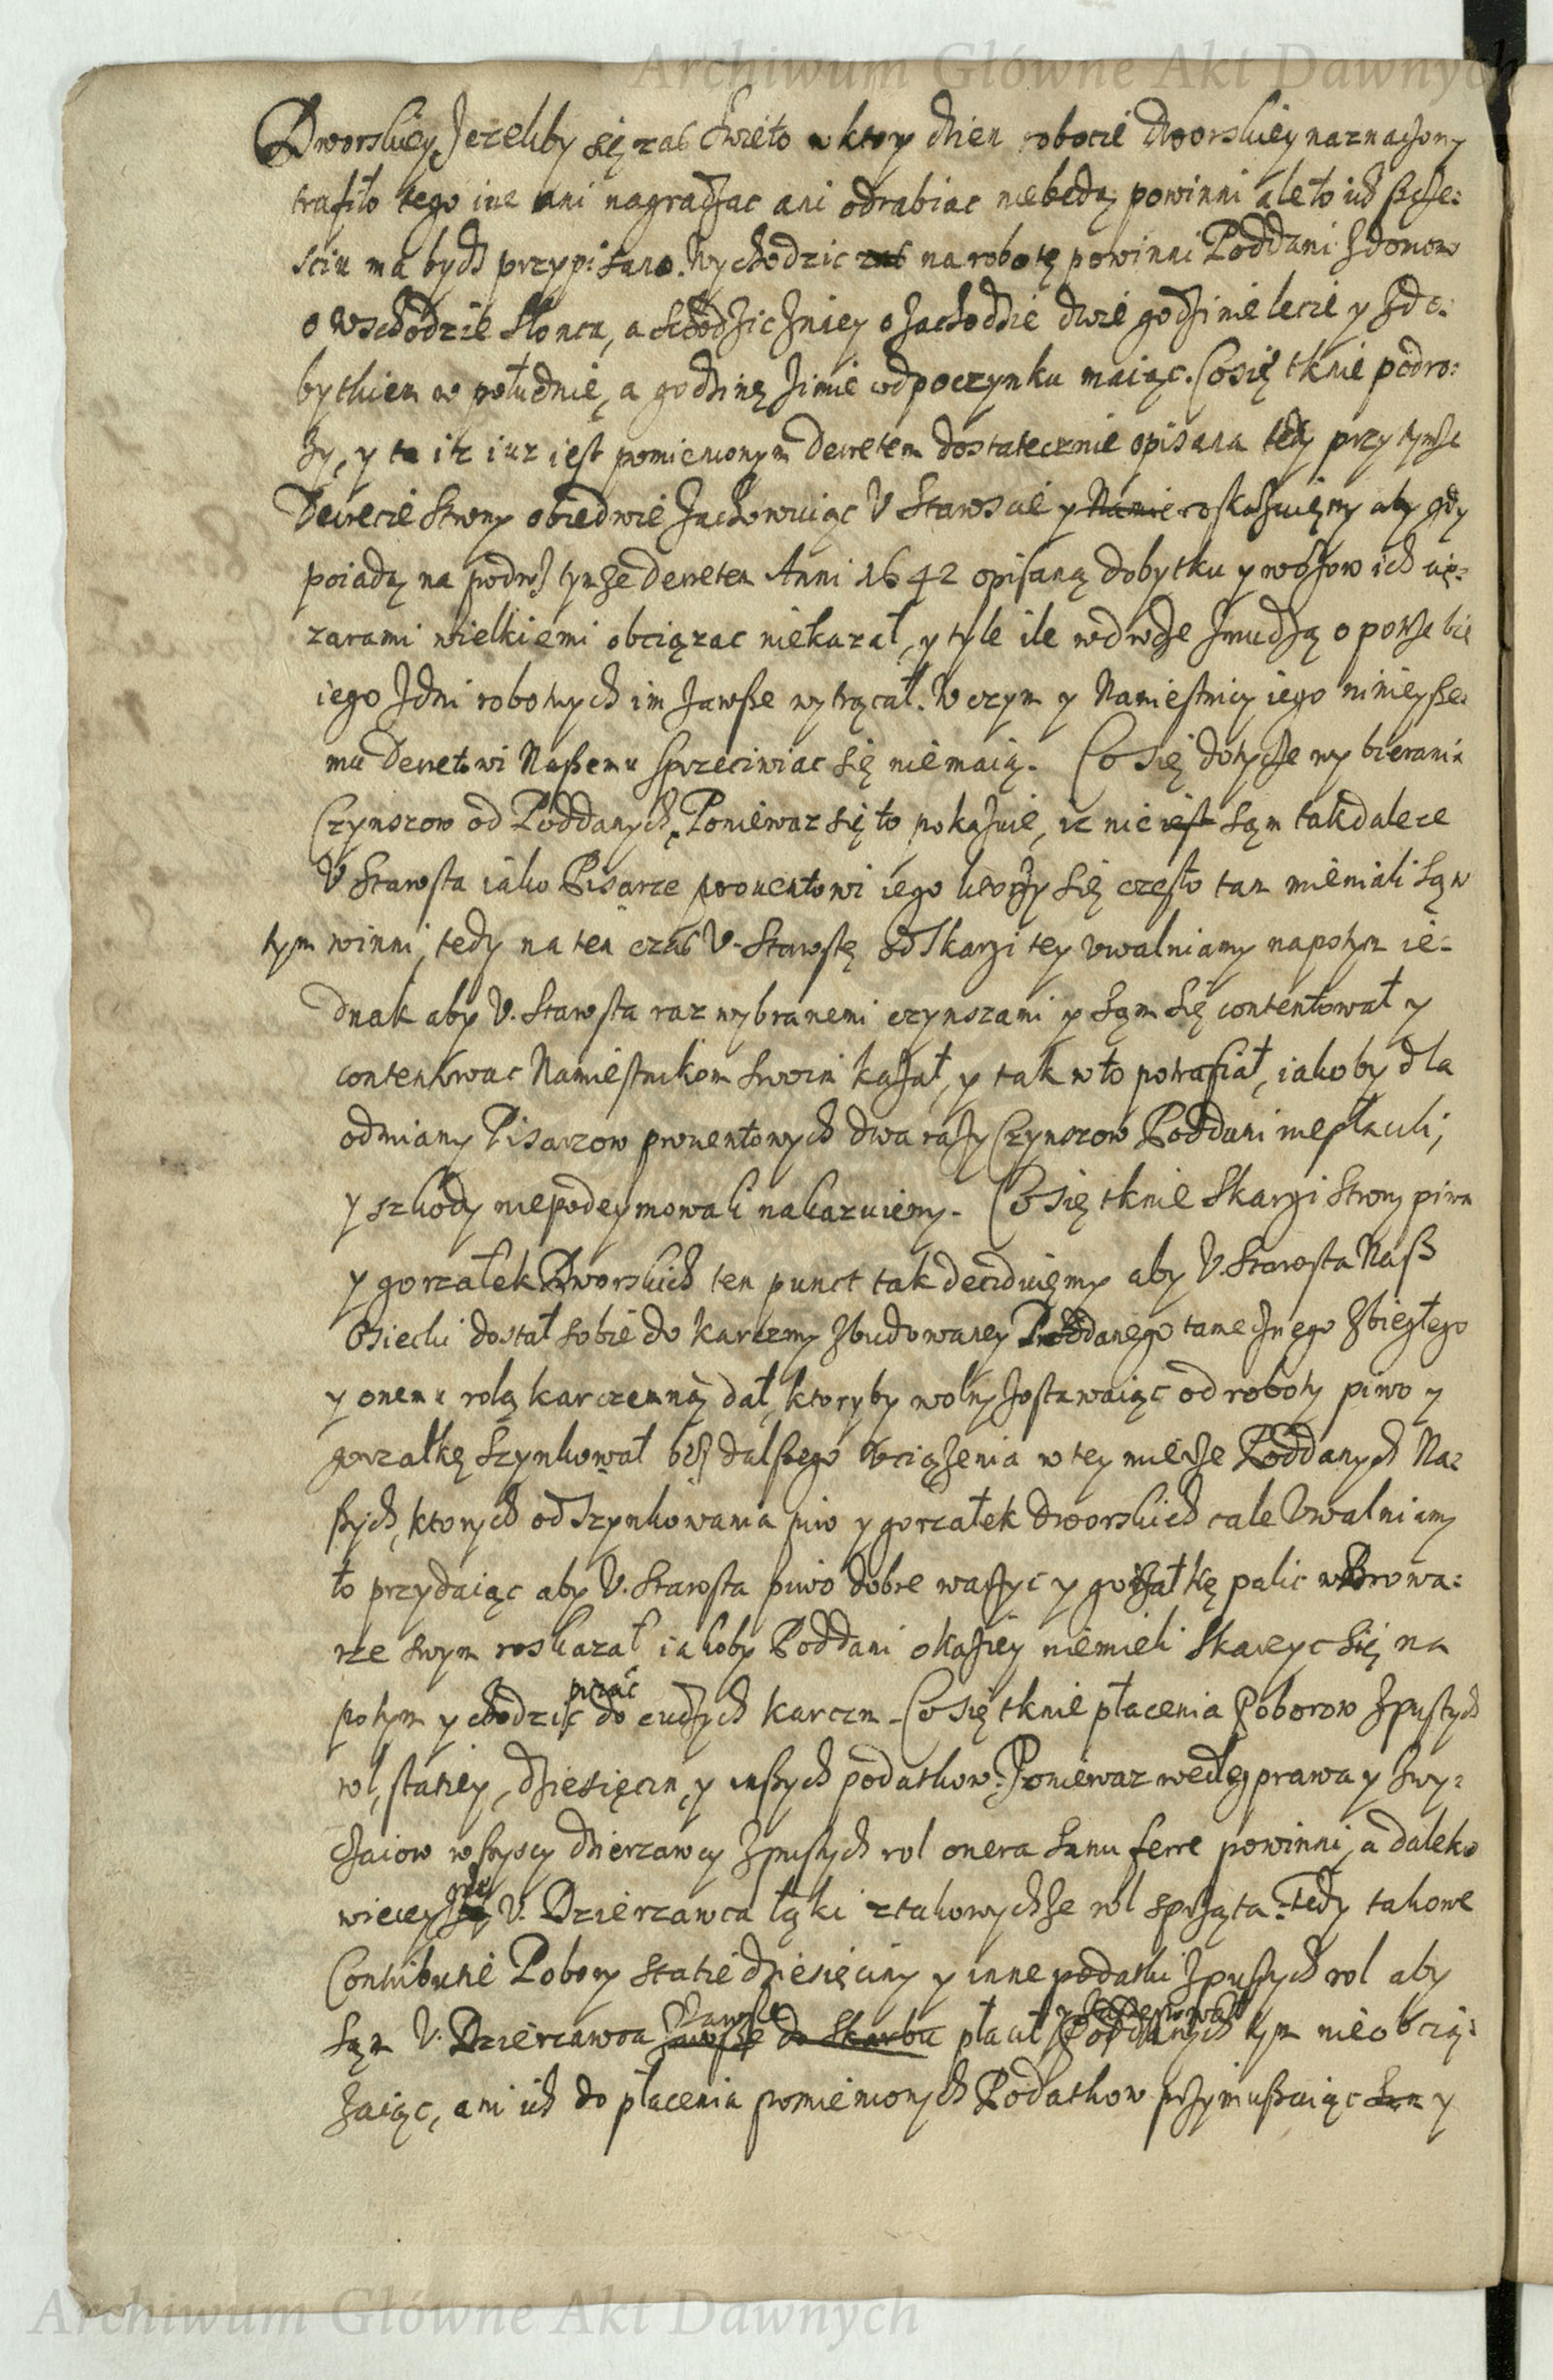 Archiwum Główne Akt Dawnych
Dworskiey, Jezeliby się zas Swieto w ktory dzien robocie dworskiey naznaczony
trafiło tego ine ani nagradzac ani odrabiac niebędą powinni ale to ich szcze:
sciu ma bydz przypisano. Wychodzic zas na robotę powinni Poddani zdomow
o Wschodzie słonca, a schodzic zniey o zachodzie dwie godzinie lecie y zdo:
bytkiem w południe, a godzinę zimie odpoczynku maiąc. Co się tknie podro:
zy, y ta iz iuz iest pomienionym Decretem dostatecznie opisana tedy przy tymze
Decrecie strony obiedwie zachowuiąc V Staroscie y Namie roskazuięmy aby gdy
poiadą na podroz tymze decretem Anni 1642 opisaną dobytku y wozow ich cię:
zarami wielkiemi obciązac niekazał, y tyle ile w drodze zmudzą o potrzebie
iego zdni robotnych im zawsze wytrącał. W czym y Namiestnicy iego ninieysze:
mu Decretowi Naszemu sprzeciwiac się niemaią. Co się dotycze wybierania
Czynszow od Poddanych, Poniewaz się to pokazuie, iz nie iest sąm takdalece
V Starosta iako Pisarze prouentowi iego ktorzy się często tam mieniali są w
tym winni, tedy na ten czas V. Starostę od skargi tey vwalniamy napotym ie:
dnak aby V. Starosta raz wybranemi czynszami y sąm się contentował y
contentowac Namiestnikom swoim kazał, y tak w to potrafiał, iakoby dla
odmiany Pisarzow prouentowych dwa razy Czynszow Poddani niepłacili,
y szkody niepodeymowali nakazuiemy. Co się tknie skargi strony piwa
y gorzałek Dworskich ten punct tak deciduięmy aby V. Starosta Nasz
Osiecki dostał sobie do karczmy zbudowaney Poddanego tamecznego zbiegłego
y onemu rolą karczemną dał, ktoryby wolny zostawaiąc od roboty piwo y
gorzałkę szynkował bez dalszego obciązenia w tey mierze Poddanych Na:
szych, ktorych od szynkowania piw y gorzałek dworskich cale Vwalniamy
to przydaiąc aby V. Starosta piwo dobre warzyc y gorzałkę palic w Browa:
rze swym roskazał iakoby Poddani okaziey niemieli skarzyc się na
potym y chodzic pijać do cudzych karczm. Co się tknie płacenia Poborow zpustych
rol, staciey, dziesięcin, y inszych podatkow: Poniewaz wedlug prawa y zwy:
czaiow wszyscy dzierzawcy zpustych rol onera sami ferre powinni, a daleko
wiecey gdy V. Dzierzawca łąki ztakowychze rol sprząta: Tedy takowe
Contributie Pobory stacie dziesięciny y inne podatki zpustych rol aby
sąm V. Dzierzawca zawsze zawsze do skarbu płacił Poddanych tym nieobcią:
zaiąc, ani ich do płacenia pomienionych Podatkow przymuszaiąc y
Archiwum Główne Akt Dawnych